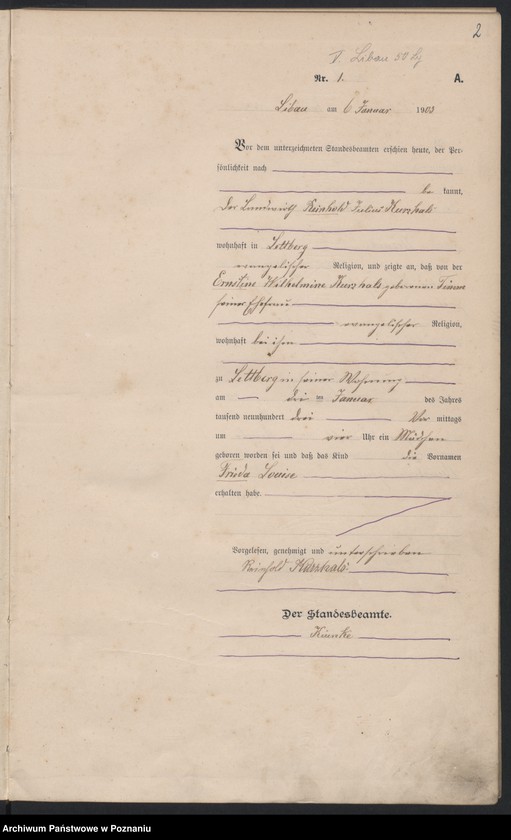 2
Nr. 1. A.
Libau am 6 Januar 1903
Vor dem unterzeichneten Standesbeamten erschien heute, der Per-
sönlichkeit nach
be kannt,
der Landwirth Reinhold Julius Kurzhals
wohnhaft in Lettberg
evangelischer Religion, und zeigte an, daß von der
Ernstine Wilhelmine Kurzhals geborenen
seiner Ehefrau
evangelischer Religion,
wohnhaft bei ihm
zu Lettberg in seiner Wohnung
am drei ten Januar des Jahres
tausend neunhundert drei Vor mittags
um vier Uhr ein Mädchen
geboren worden sei und daß das Kind die Vornamen
Frieda Louise
erhalten habe.
Vorgelesen, genehmigt und unterschrieben
Reinhold Kurzhals
Der Standesbeamte.
Archiwum Państwowe w Poznaniu